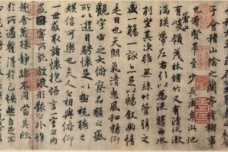 于會稽山陰之蘭亭脩稧事
也羣賢畢至少長咸集此地
有峻領茂林脩竹又有清流激
湍暎帶左右引以為流觴曲水
列坐其次雖無絲竹管弦之
盛一觴一詠亦足以暢敘幽情
是日也天朗氣清惠風和暢仰
觀宇宙之大俯察品類之盛
所以遊目騁懷足以極視聽之
娛信可樂也夫人之相與俯仰
一世或取諸懷抱悟言一室之內
因寄所託放浪形骸之外雖
趣舍萬殊靜躁不同當其欣